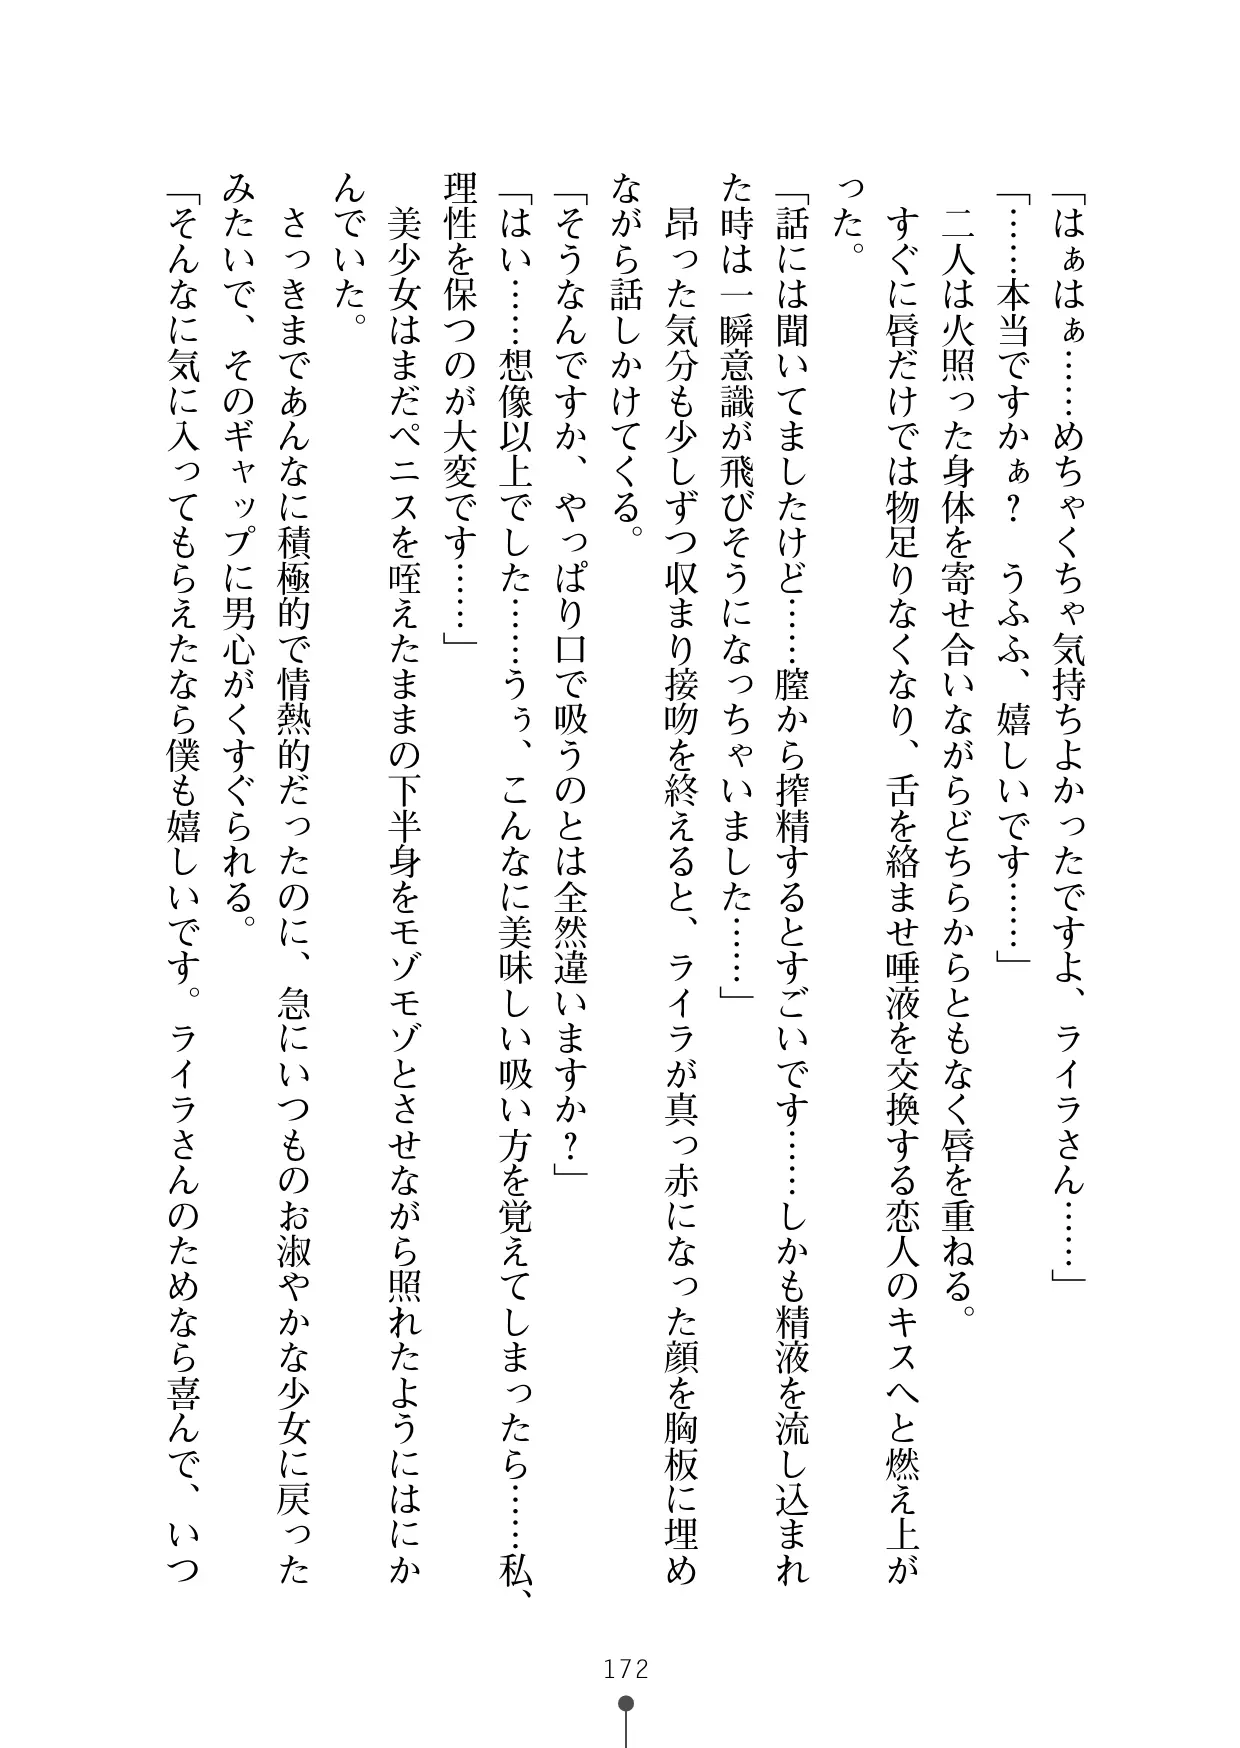 「はぁはぁ……めちゃくちゃ気持ちよかったですよ、ライラさん……」
「……本当ですかぁ？　うふふ、嬉しいです……」
　二人は火照った身体を寄せ合いながらどちらからともなく唇を重ねる。
　すぐに唇だけでは物足りなくなり、舌を絡ませ唾液を交換する恋人のキスへと燃え上が
った。
「話には聞いてましたけど……膣から搾精するとすごいです……しかも精液を流し込まれ
た時は一瞬意識が飛びそうになっちゃいました……」
　昂った気分も少しずつ収まり接吻を終えると、ライラが真っ赤になった顔を胸板に埋め
ながら話しかけてくる。
「そうなんですか、やっぱり口で吸うのとは全然違いますか？」
「はい……想像以上でした……うぅ、こんなに美味しい吸い方を覚えてしまったら……私、
理性を保つのが大変です……」
　美少女はまだペニスを咥えたままの下半身をモゾモゾとさせながら照れたようにはにか
んでいた。
　さっきまであんなに積極的で情熱的だったのに、急にいつものお淑やかな少女に戻った
みたいで、そのギャップに男心がくすぐられる。
「そんなに気に入ってもらえたなら僕も嬉しいです。ライラさんのためなら喜んで、いつ
172